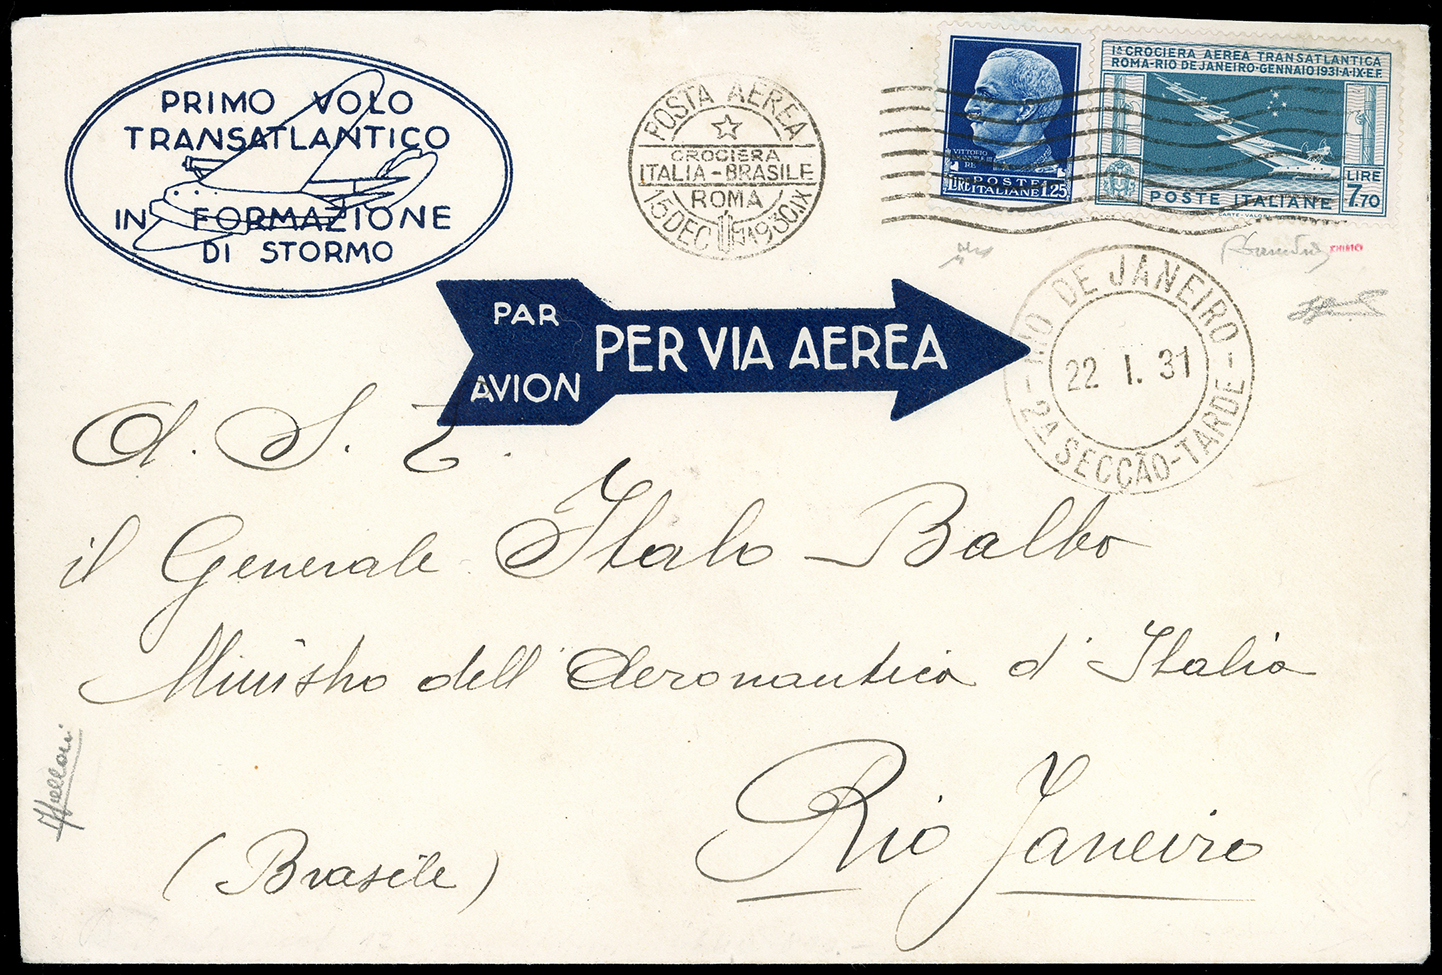 PRIMO VOLO
TRANSATLANTICO
IN FORMAZIONE
DI STORMO
POSTA AEREA
CROCIERA
ITALIA-BRASILE
ROMA
15 DEC 1930 IX
VITTORIO
EMANUELE III
RE
POSTE
LIRE ITALIANE 1.25
Iᴬ CROCIERA AEREA TRANSATLANTICA
ROMA-RIO DE JANEIRO-GENNAIO 1931-A·IX·E.F.
LIRE
POSTE ITALIANE 7.70
PAR
AVION
PER VIA AEREA
RIO DE JANEIRO
22 I. 31
2A SECÇÃO-TARDE
A. S. E.
il Generale Italo Balbo
Ministro dell'Aeronautica d'Italia
Rio Janeiro
(Brasile)